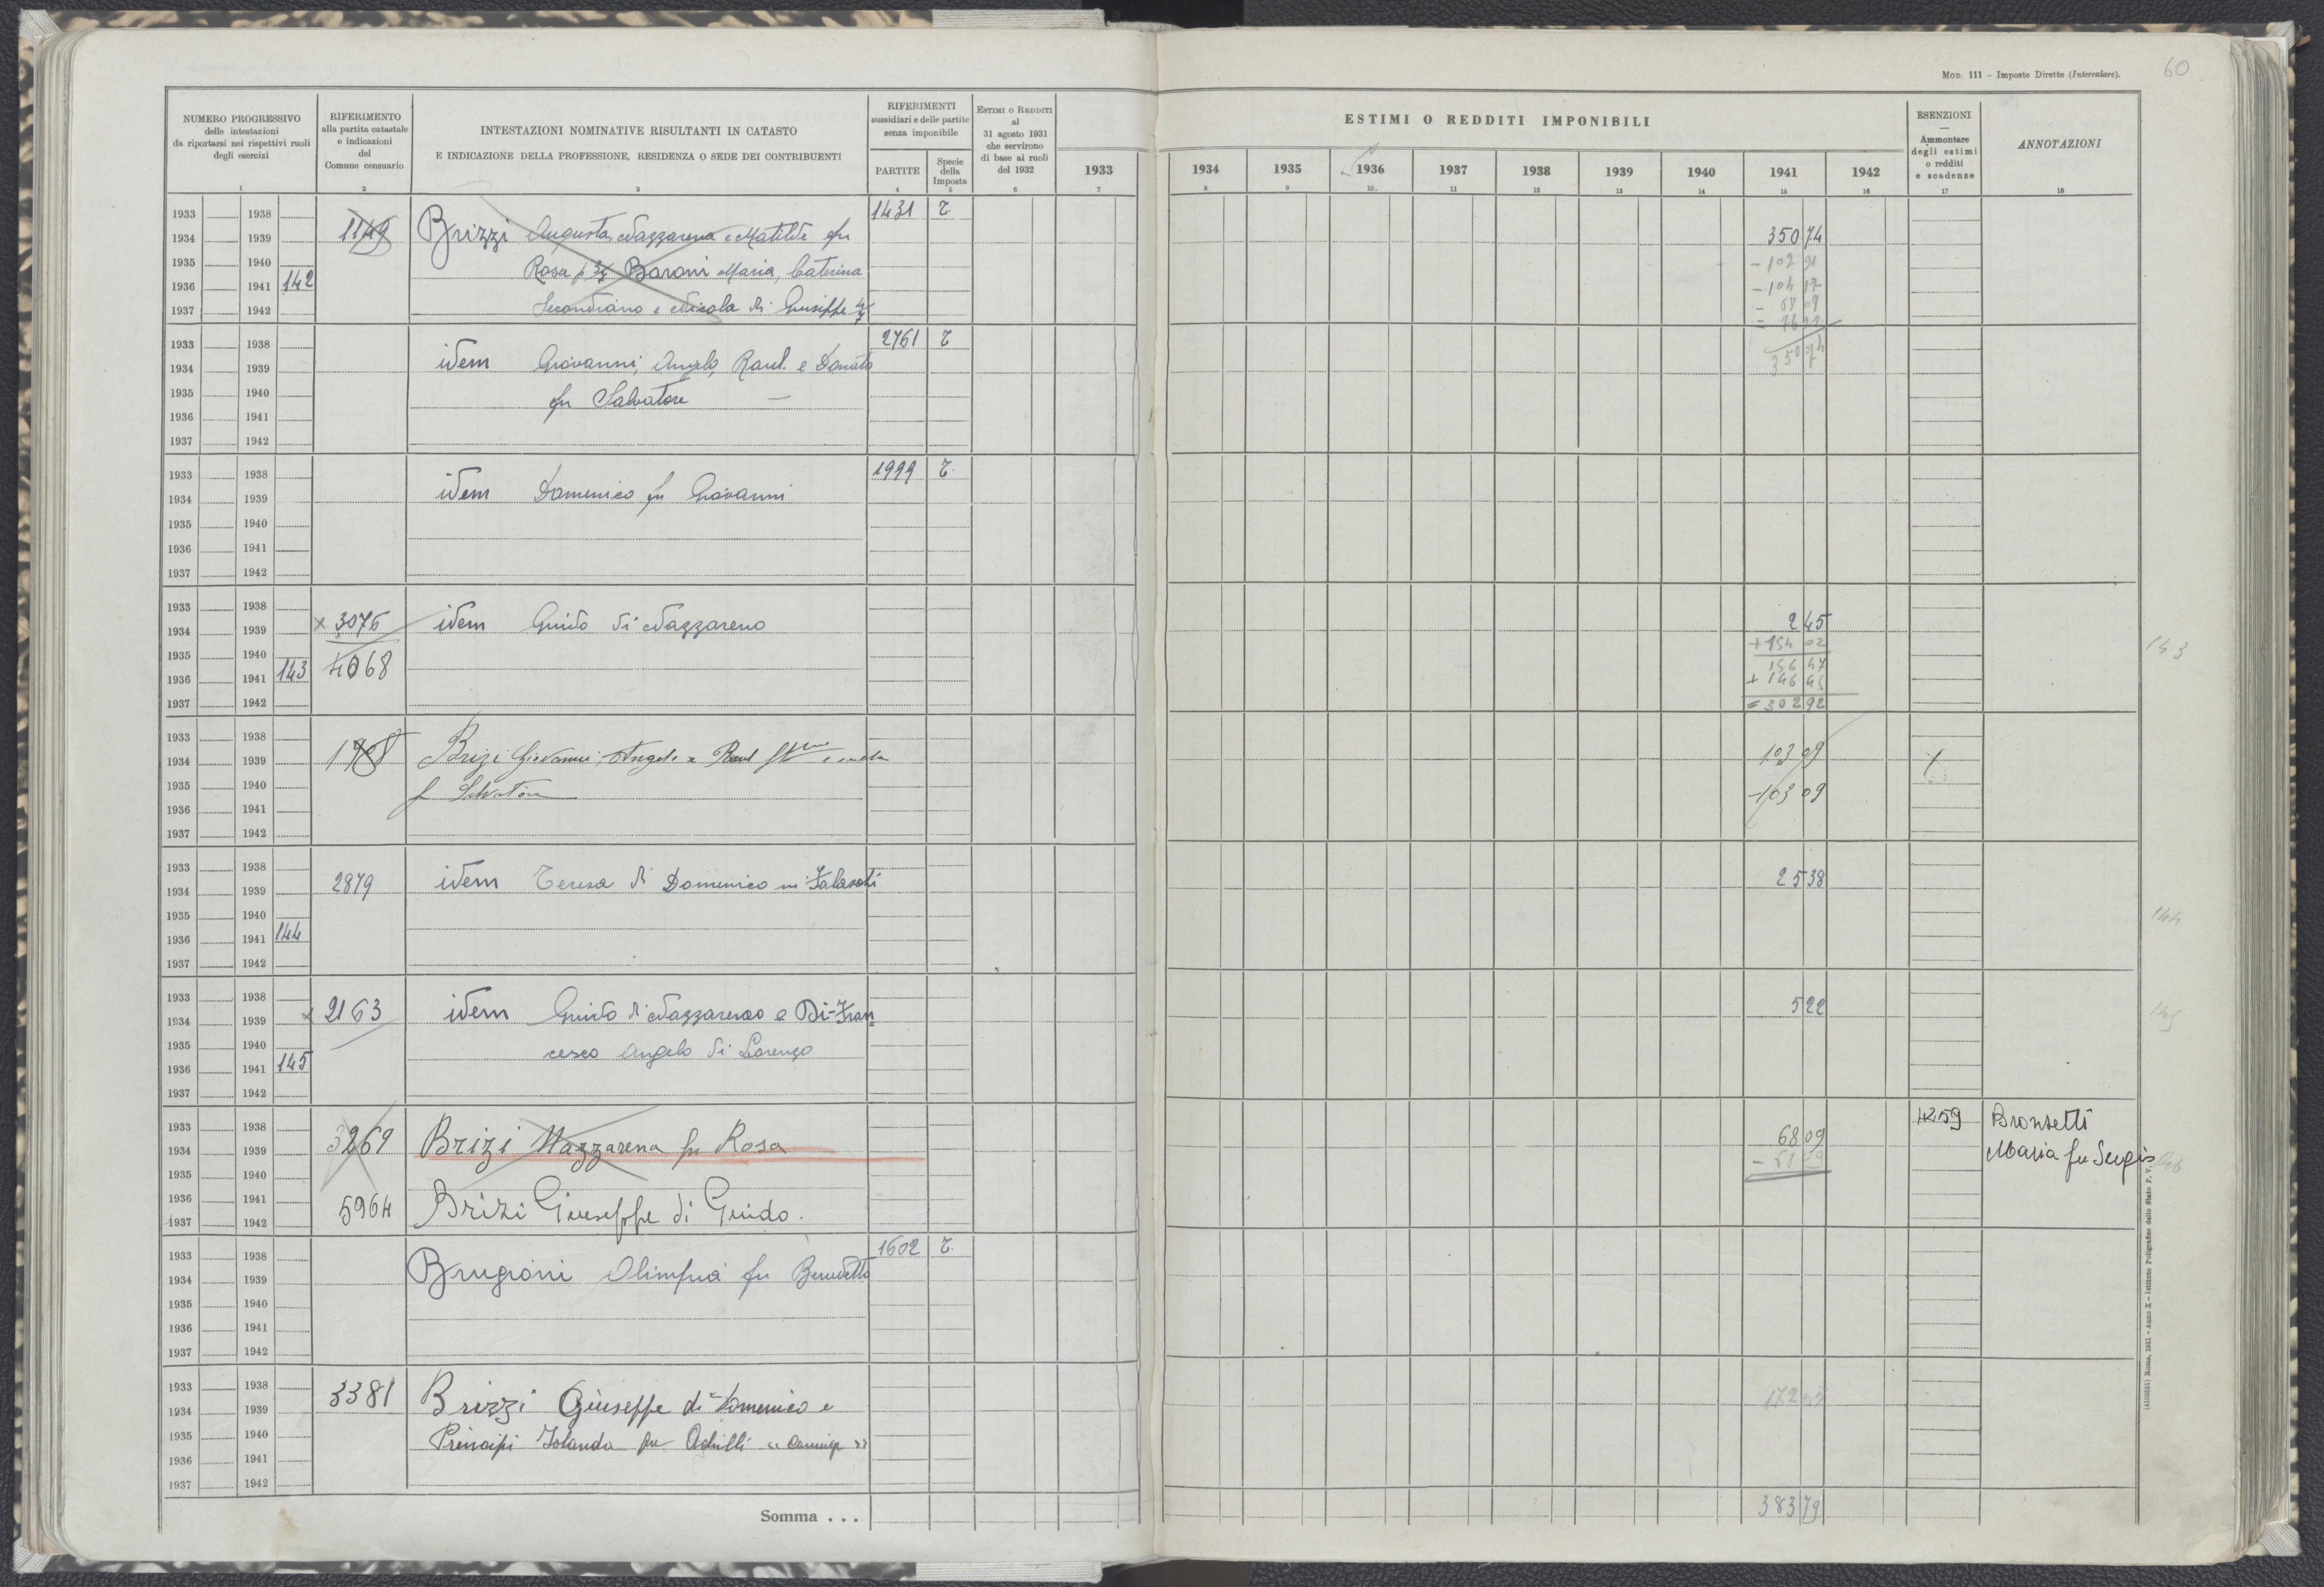 MOD. 111 – Imposte Dirette (Intercalare).
60
NUMERO PROGRESSIVO
delle intestazioni
da riportarsi nei rispettivi ruoli
degli esercizi
RIFERIMENTO
alla partita catastale
e indicazioni
del
Comune censuario
INTESTAZIONI NOMINATIVE RISULTANTI IN CATASTO
E INDICAZIONE DELLA PROFESSIONE, RESIDENZA O SEDE DEI CONTRIBUENTI
RIFERIMENTI
sussidiari e delle partite
senza imponibile
PARTITE
Specie
della
Imposta
ESTIMI O REDDITI
al
31 agosto 1931
che servirono
di base ai ruoli
del 1932
ESTIMI O REDDITI IMPONIBILI
1933 1934 1935 1936 1937 1938 1939 1940 1941 1942
ESENZIONI
—
Ammontare
degli estimi
o redditi
e scadenze
ANNOTAZIONI
1 2 3 4 5 6 7 8 9 10. 11 12 13 14 15 16 17 18
1933 1938 1431 T.
1934 1939 1149 Brizzi Augusta, Nazzarena e Matilde fu 350 74
1935 1940 Rosa p 3/7 Baroni Maria, Caterina - 102 91
1936 1941 142 - 104 17
1937 1942 Secondiano e Nicola di Giuseppe 4/7 - 68 09
350 74
1933 1938 2761 T
1934 1939 idem Giovanni, Angelo, Raul. e Donato
1935 1940 fu Salvatore —
1936 1941
1937 1942
1933 1938 1999 T.
1934 1939 idem Domenico fu Giovanni
1935 1940
1936 1941
1937 1942
1933 1938
1934 1939 x 3076 idem Guido di Nazzareno 2 45
1935 1940 + 154 02
1936 1941 143 4068 156 47
+ 146 45
1937 1942 = 302 92
143
1933 1938
1934 1939 1908 Brizi Giovanni, Angelo e Raul 103 09
1935 1940 f Salvatore - 103 09
1936 1941
1937 1942
1933 1938
1934 1939 2879 idem Teresa di Domenico in Falaschi 25 38
1935 1940
1936 1941 144
1937 1942
144
1933 1938
1934 1939 x 2163 idem Guido di Nazzareno e Di-Fran 5 22
1935 1940 cesco Angelo di Lorenzo
1936 1941 145
1937 1942
145
1933 1938 4259 Bronsetti
1934 1939 3269 Brizi Nazzarena fu Rosa 68 09 Maria fu Sergio
1935 1940
146
1936 1941
1937 1942 5964 Brizi Giuseppe di Guido.
1933 1938 1602 T.
1934 1939 Brugioni Olimpia fu Benedetto
1935 1940
1936 1941
1937 1942
1933 1938 3381 Brizzi Giuseppe di Domenico e
1934 1939 172 05
1935 1940 Principi Iolanda fu Achille « coniugi »
1936 1941
1937 1942
Somma . . . 383 79
(4100331) Roma, 1931 – Anno X – Istituto Poligrafico dello Stato P. V.